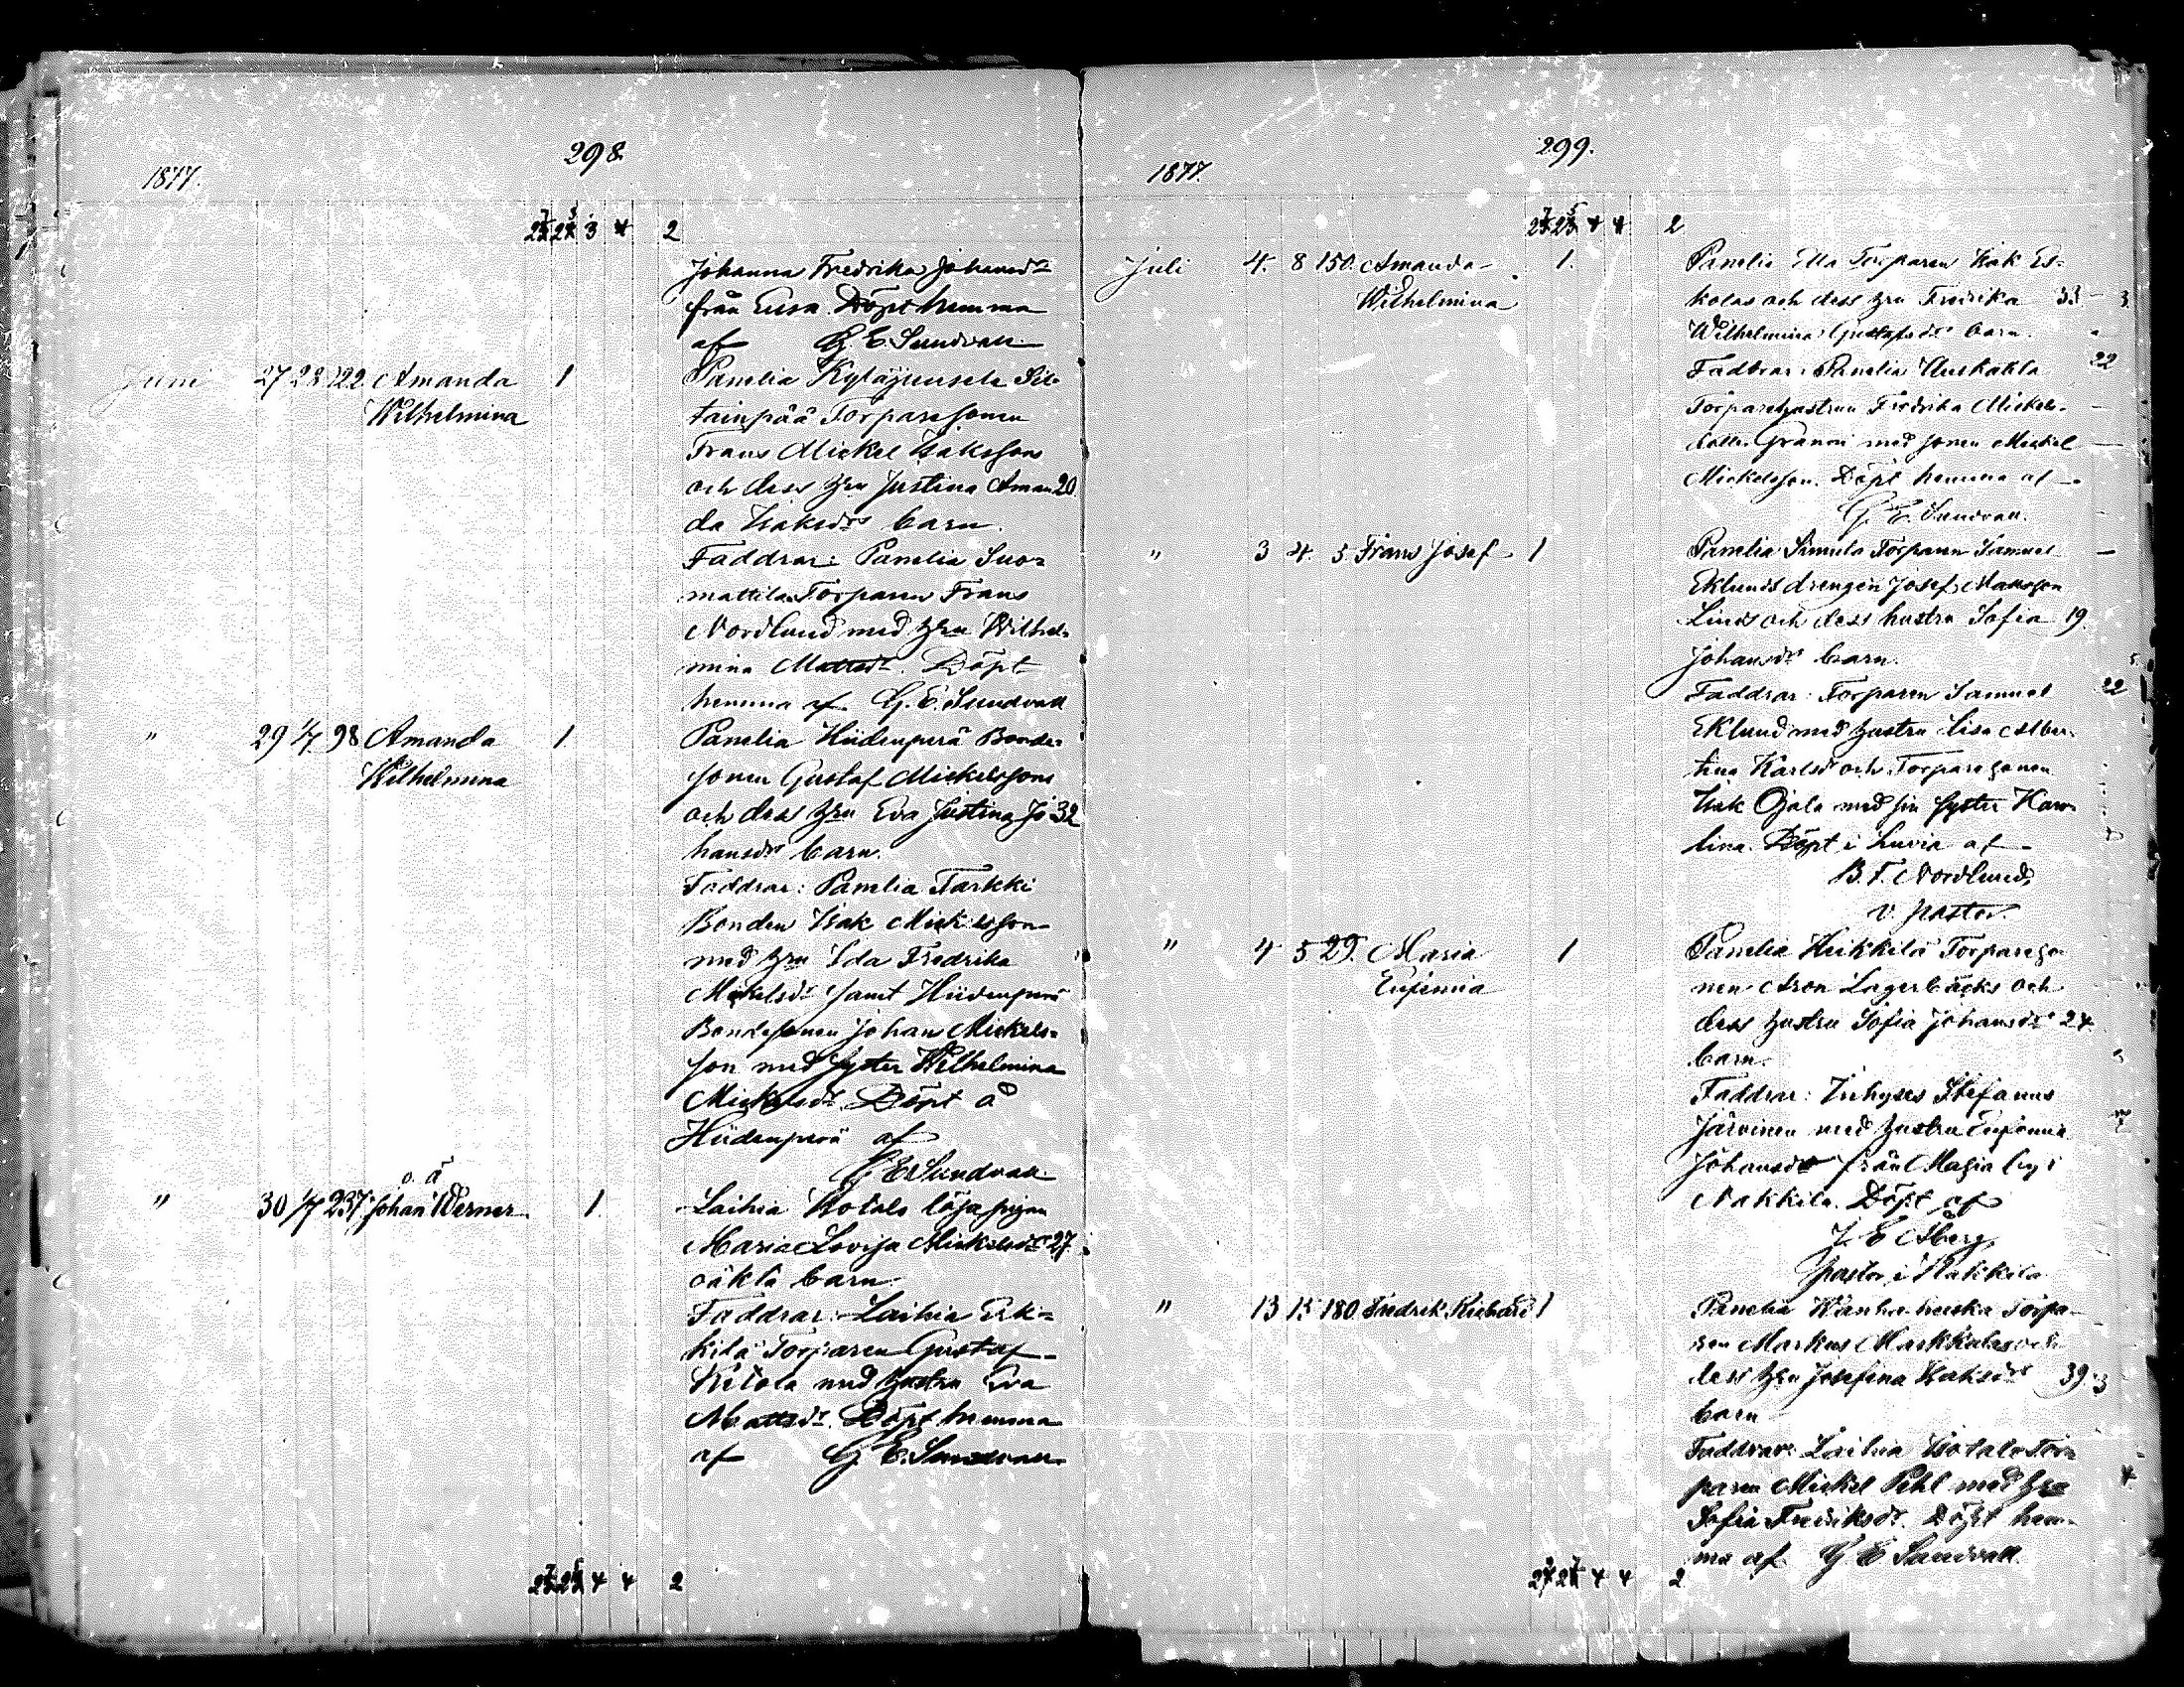 298.
1877.
Johanna Fredrika Johansdr
från Eura. Döpt hemma
af G. E. Sundvall
Juni 27 28 122 Amanda 1 Panelia Kyläjunsela Sil-
Wilhelmina tainpää Torparesonen
Frans Mickel Isakssons
och dess hru Justina Aman 20
da Isaksdrs barn.
Faddrar: Panelia Suo-
mattila Torparen Frans
Nordlund med hru Wilhel-
mina Mattsdr. Döpt
hemma af G. E. Sundvall
" 29 1/7 98 Amanda 1 Panelia Hiidenperä Bonde-
Wilhelmina sonen Gustaf Mickelssons
och dess hru Eva Justina Jo- 32
hansdrs barn.
Faddrar: Panelia Tarkki
Bonden Isak Mickelsson
med hru Ida Fredrika
Mickelsdr samt Hiidenperä
Bondesonen Johan Mickels-
son med syster Wilhelmina
Mickelsdr. Döpt å
Hiidenperä af
G E Sundvall
o. ä
" 30 1/7 237 Johan Werner 1. Laihia Isotalo löja pigan
Maria Lovisa Mickelsdrs 27
oäkta barn.
Faddrar: Laihia Erk-
kilä Torparen Gustaf
Ketola med hustru Eva
Mattsdr. Döpt hemma
af G. E. Sundvall
299.
1877.
Juli 4. 8 150. Amanda 1. Panelia Torparen Isak Es-
Wilhelmina kolas och dess hru Fredrika 33
Wilhelmina Gustafsdrs barn.
Faddrar: Panelia 22
Torparehustrun Fredrika Mickels-
dotter med sonen Mickel
Mickelsson. Döpt hemma af
G. E. Sundvall.
" 3 4. 5 Frans Josef 1 Panelia Simula Torparen Samuel
Eklunds drengen Josef Mattsson
Linds och dess hustru Sofia 19
Johansdrs barn.
Faddrar: Torparen Samuel 22
Eklund med hustru Lisa Alber-
tina Karlsdr och Torparesonen
Isak Ojala med sin syster Karo-
lina. Döpt i Luvia af
B. F. Nordlund,
v. pastor.
" 4 5 29. Maria 1 Panelia Heikkilä Torpareso-
Eufemia nen Aron Lagerbäcks och
dess hustru Sofia Johansdrs 24
barn.
Faddrar: Inhyses Stefanus
Järvinen med hustru Eufemia
Johansdr från by i
Nakkila. Döpt af
J. E. Åberg,
pastor i Nakkila
" 13 15 180 Fredrik Richard 1 Panelia Torpa-
ren Markus Markkulas och
dess hru Josefina Isaksdrs 39
barn
Faddrar: Laihia Isotalo Tor-
paren Mickel Pihl med hru
Sofia Fredriksdr. Döpt hem-
ma af G E Sundvall.